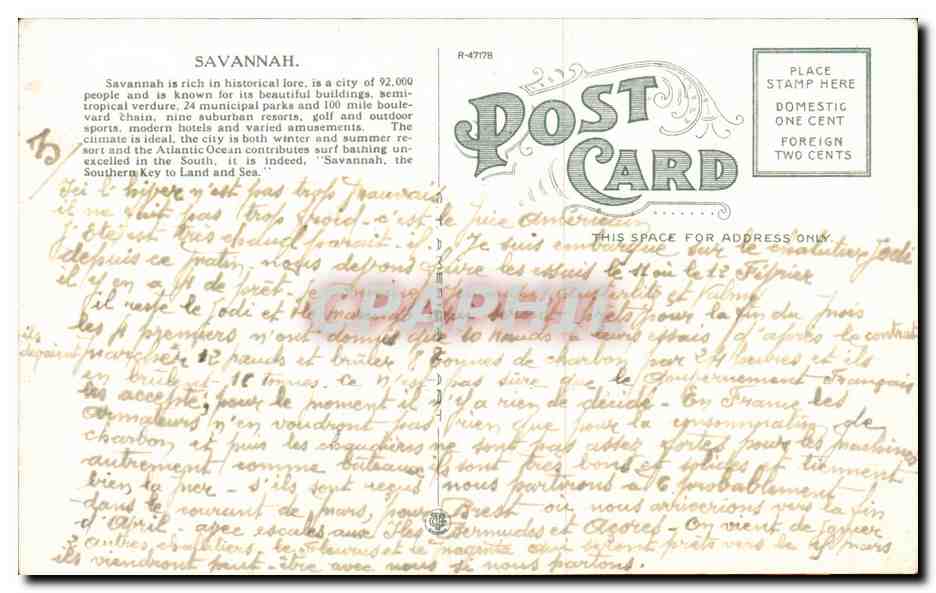 SAVANNAH.
Savannah is rich in historical lore, is a city of 92,000
people and is known for its beautiful buildings, semi-
tropical verdure, 24 municipal parks and 100 mile boule-
vard chain, nine suburban resorts, golf and outdoor
sports, modern hotels and varied amusements. The
climate is ideal, the city is both winter and summer re-
sort and the Atlantic Ocean contributes surf bathing un-
excelled in the South, it is indeed, "Savannah, the
Southern Key to Land and Sea."
R-47178
POST
CARD
PLACE
STAMP HERE
DOMESTIC
ONE CENT
FOREIGN
TWO CENTS
THIS SPACE FOR ADDRESS ONLY
Ici l'hiver n'est pas trop mauvais
il ne fait pas trop froid - c'est le
l'Eté est très chaud parait-il. Je suis embarqué sur le chalutier Jodi
depuis ce matin, nous devons faire les essais le 11 ou le 12 Février
il y en a 4 de prêt et Valmy
il reste le Jodi et pour la fin du mois
les 4 premiers n'ont donné que 10 nœuds leurs essais d'après le contrat
ils devaient marcher 12 nœuds et brûler 8 tonnes de charbon par 24 heures et ils
en brûlent 18 tonnes. ce n'est pas sûre que le Gouvernement Français
les accepte, pour le moment il n'y a rien de décidé - En France les
armateurs n'en voudront pas rien que pour la consommation de
charbon et puis les chaudières ne sont pas assez fortes pour les machines
autrement comme bateaux ils sont très bons et solides et tiennent
bien la mer - s'ils sont reçus nous partirons à 6 probablement
dans le courant de mars, pour Brest où nous arriverons vers la fin
d'Avril - avec escales aux Iles Bermudes et Açores - On vient de
autres chalutiers, le Fleurus et le Magenta qui seront prêts vers le mars
ils viendront peut-être avec nous si nous partons.
CPAPHIL